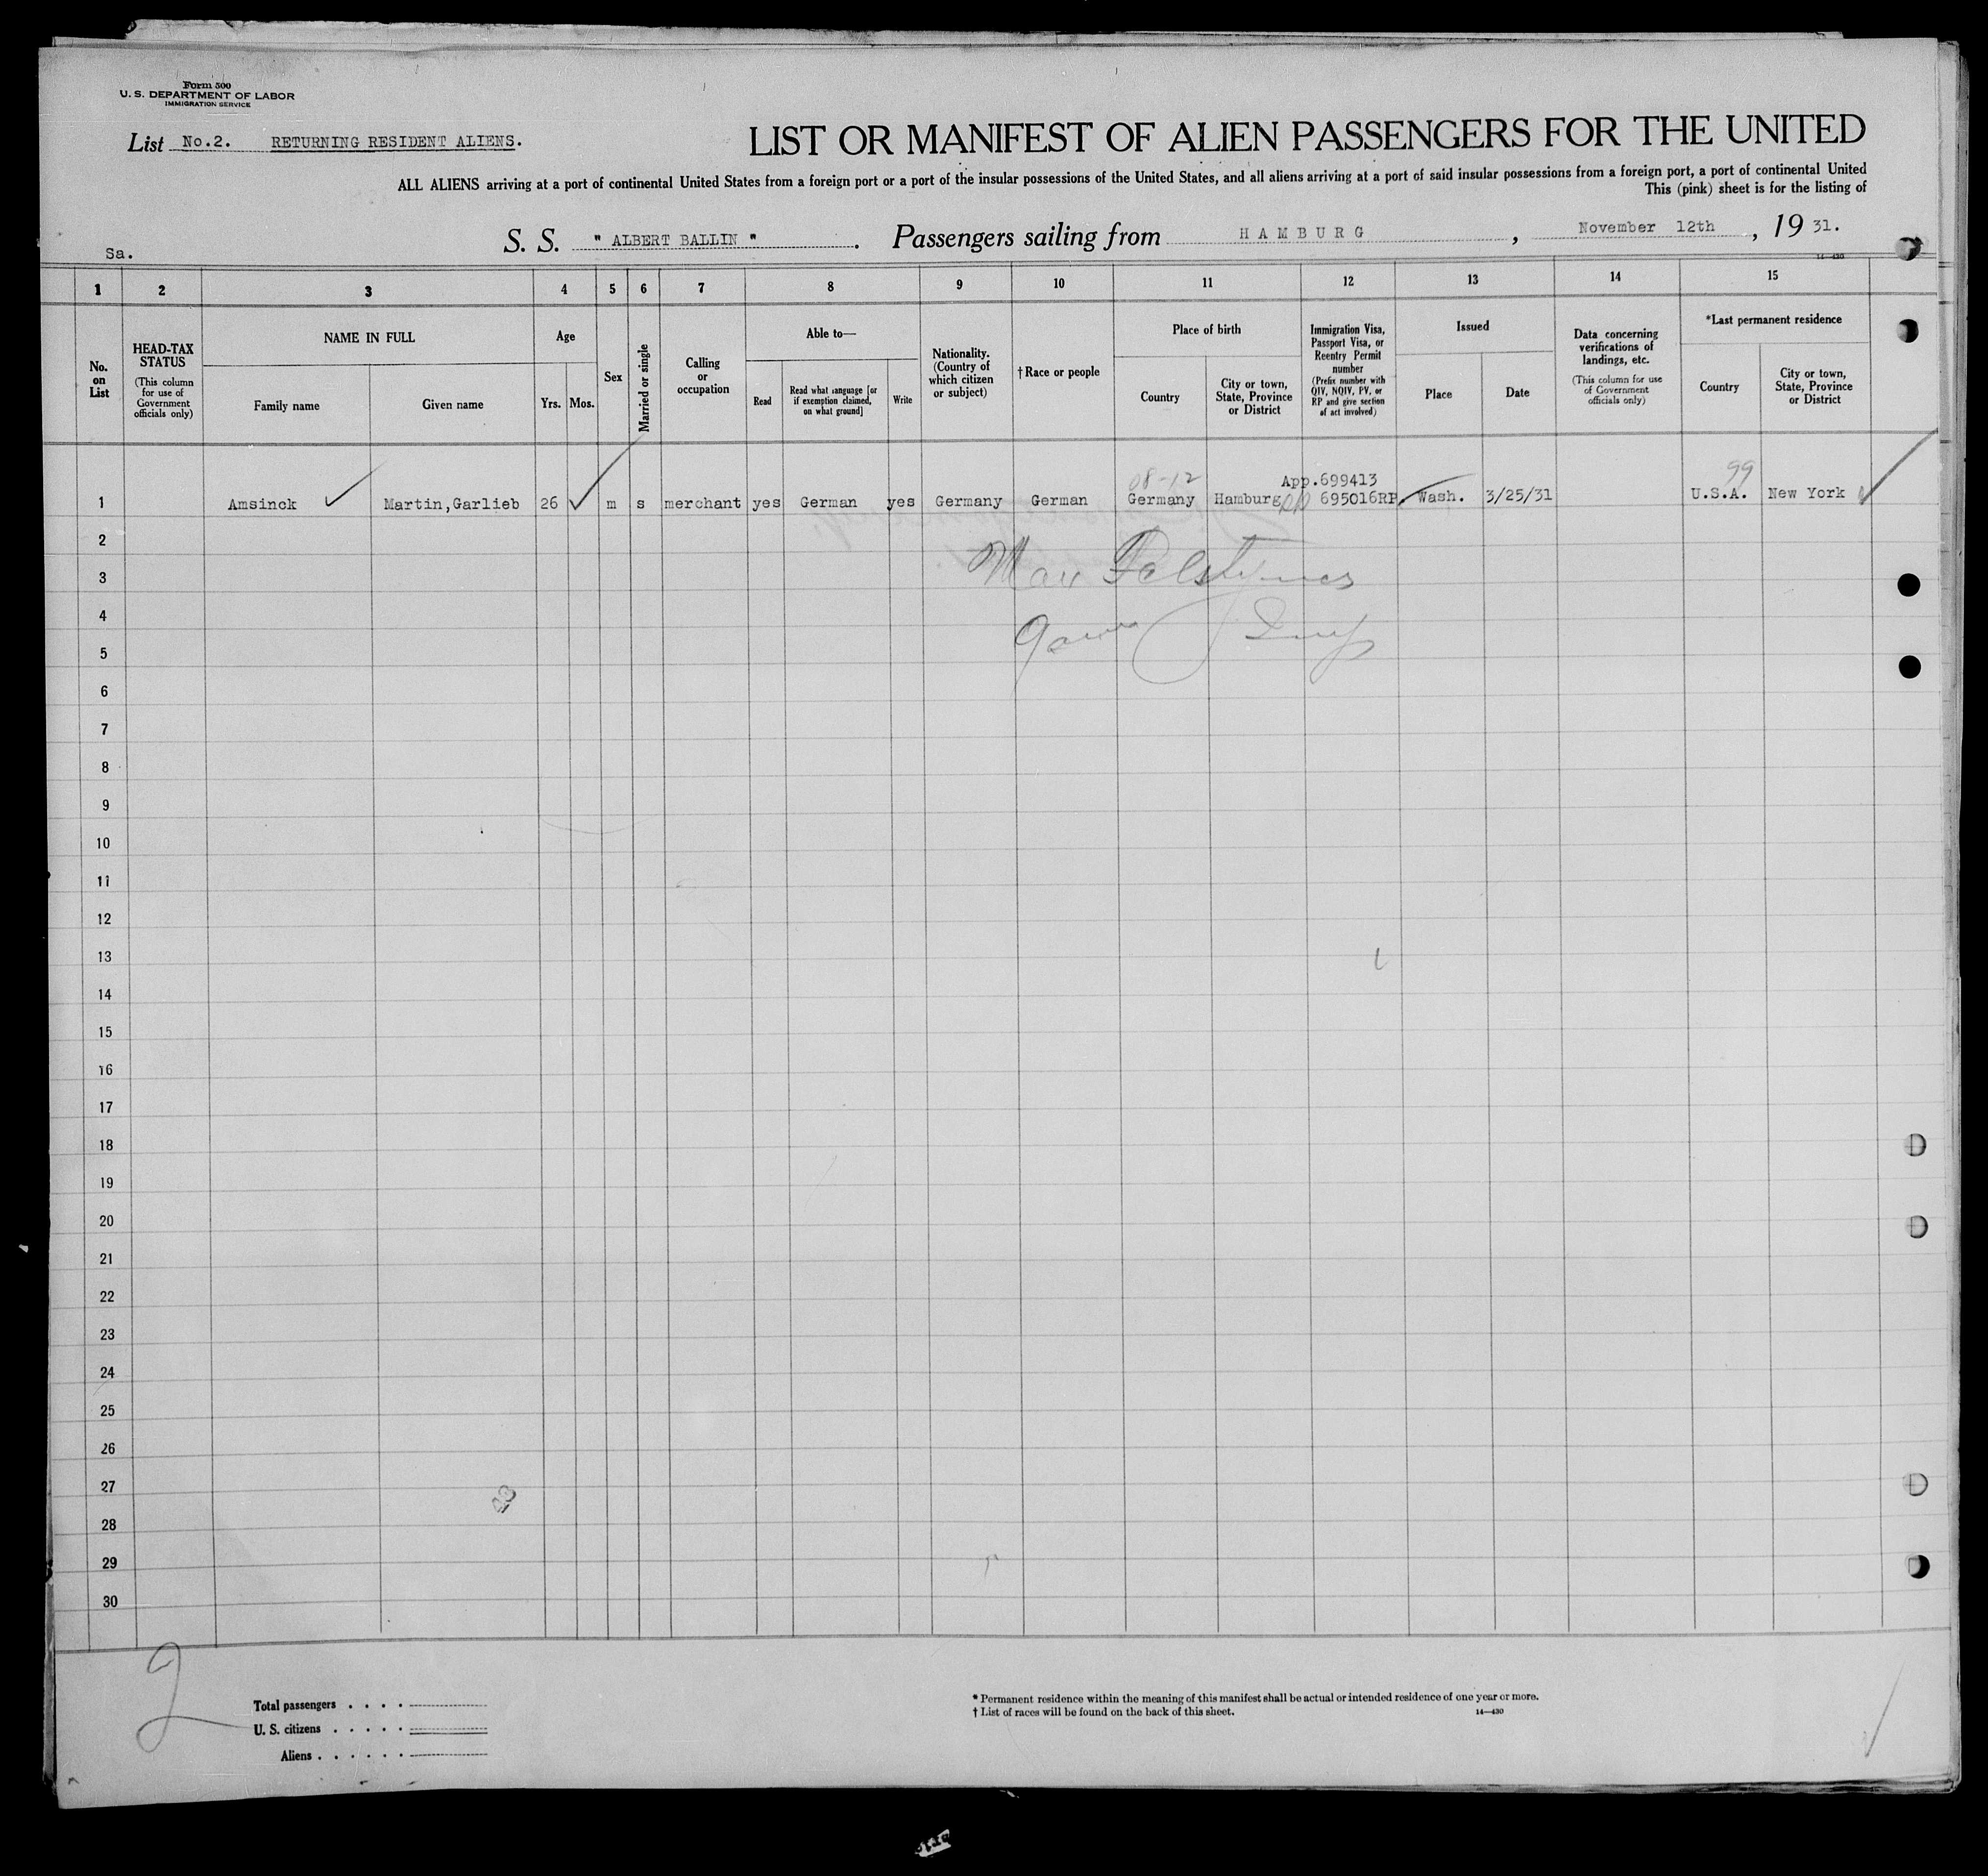 Form 500
U. S. DEPARTMENT OF LABOR
IMMIGRATION SERVICE
List No.2. RETURNING RESIDENT ALIENS.
LIST OR MANIFEST OF ALIEN PASSENGERS FOR THE UNITED
ALL ALIENS arriving at a port of continental United States from a foreign port or a port of the insular possessions of the United States, and all aliens arriving at a port of said insular possessions from a foreign port, a port of continental United
This (pink) sheet is for the listing of
Sa.
S. S. " ALBERT BALLIN ". Passengers sailing from HAMBURG, November 12th, 19 31.
14—430
1 2 3 4 5 6 7 8 9 10 11 12 13 14 15
No. on List
HEAD-TAX STATUS
(This column for use of Government officials only)
NAME IN FULL
Family name
Given name
Age
Yrs.
Mos.
Sex
Married or single
Calling or occupation
Able to—
Read
Read what language [or if exemption claimed, on what ground]
Write
Nationality. (Country of which citizen or subject)
†Race or people
Place of birth
Country
City or town, State, Province or District
Immigration Visa, Passport Visa, or Reentry Permit number
(Prefix number with QIV, NQIV, PV, or RP and give section of act involved)
Issued
Place
Date
Data concerning verifications of landings, etc.
(This column for use of Government officials only)
*Last permanent residence
Country
City or town, State, Province or District
08-12 App.699413 99
1 Amsinck Martin,Garlieb 26 m s merchant yes German yes Germany German Germany Hamburg 695016RP. Wash. 3/25/31 U.S.A. New York
2
Max
3
4
Insp
5
6
7
8
9
10
11
12
13
14
15
16
17
18
19
20
21
22
23
24
25
26
27
28
29
30
2
Total passengers . . . .
U. S. citizens . . . . .
Aliens . . . . . .
* Permanent residence within the meaning of this manifest shall be actual or intended residence of one year or more.
† List of races will be found on the back of this sheet.
14—430